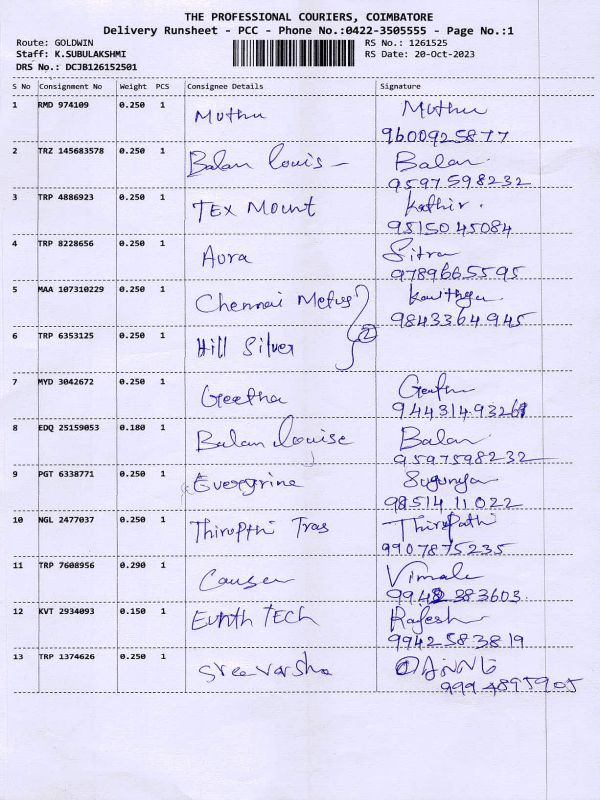 THE PROFESSIONAL COURIERS, COIMBATORE
Delivery Runsheet - PCC - Phone No.:0422-3505555 - Page No.:1
Route: GOLDWIN RS No.: 1261525
Staff: K.SUBULAKSHMI RS Date: 20-Oct-2023
DRS No.: DCJB126152501
S No Consignment No Weight PCS Consignee Details Signature
1 RMD 974109 0.250 1 Muthu Muthu
9600925877
2 TRZ 145683578 0.250 1 Balan Louis - Balan
9597598232
3 TRP 4886923 0.250 1 TEX Mount Kathir.
95150 45084
4 TRP 8228656 0.250 1 Aura Sitra
9789665595
5 MAA 107310229 0.250 1 Chennai Kavithya
9843364945
6 TRP 6353125 0.250 1 Hill Silver 2
7 MYD 3042672 0.250 1 Geetha Geetha
8 EDQ 25159053 0.180 1 Balan Louise Balan
9597598232
9 PGT 6338771 0.250 1 Evergrine Sugunya
98514 11 022
10 NGL 2477037 0.250 1 Thirupthi Tras Thirupathi
9907875235
11 TRP 7608956 0.290 1 Vimala
12 KVT 2934093 0.150 1 TECH Rajesh
9942583819
13 TRP 1374626 0.250 1 Sree varsha
9994895905